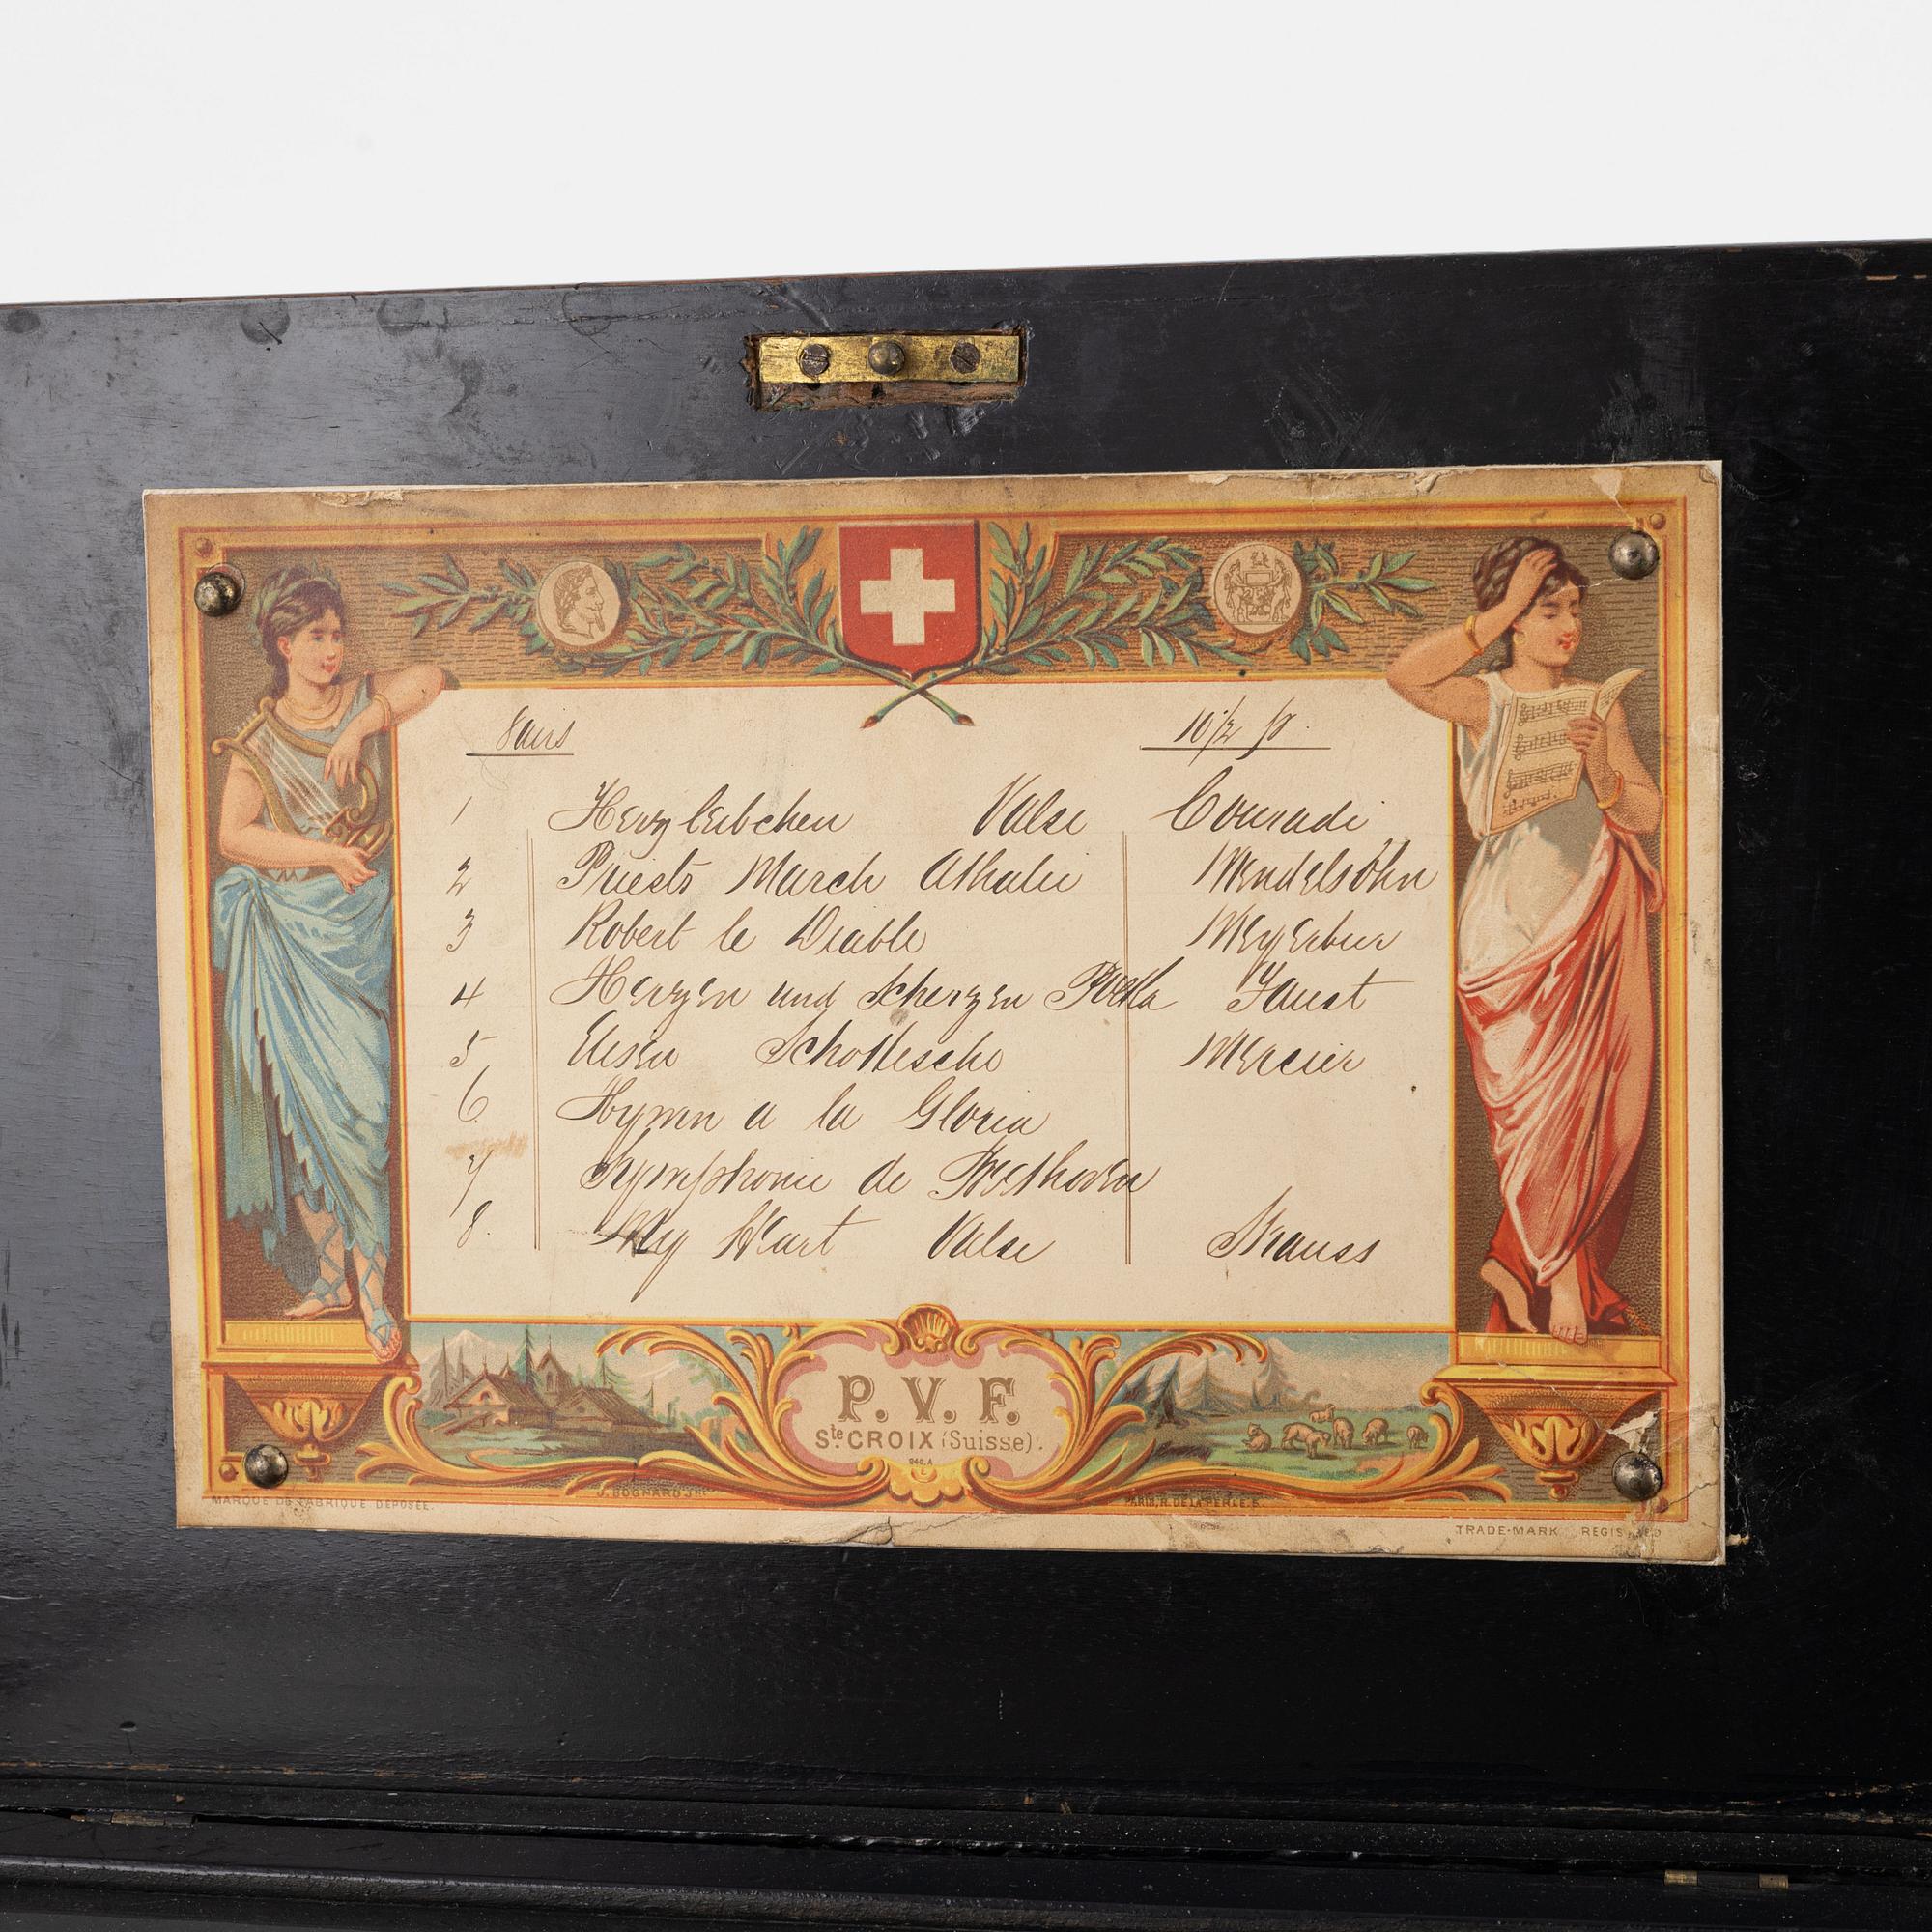 8 airs 10 1/2 p.
1 Herzleibchen Valse Conradi
2 Priests March Athalie Mendelsohn
3 Robert le Diable Meyerbeer
4 Herzen und Scherzen Polka Faust
5 Elisen Schottesche Mercier
6. Hymn a la Gloria
7 Symphonie de Beethoven
8. My Heart Valse Strauss
P. V. F.
Ste CROIX (Suisse).
MARQUE DE FABRIQUE DÉPOSÉE.
PARIS, R. DE LA PERLE. 5.
TRADE-MARK